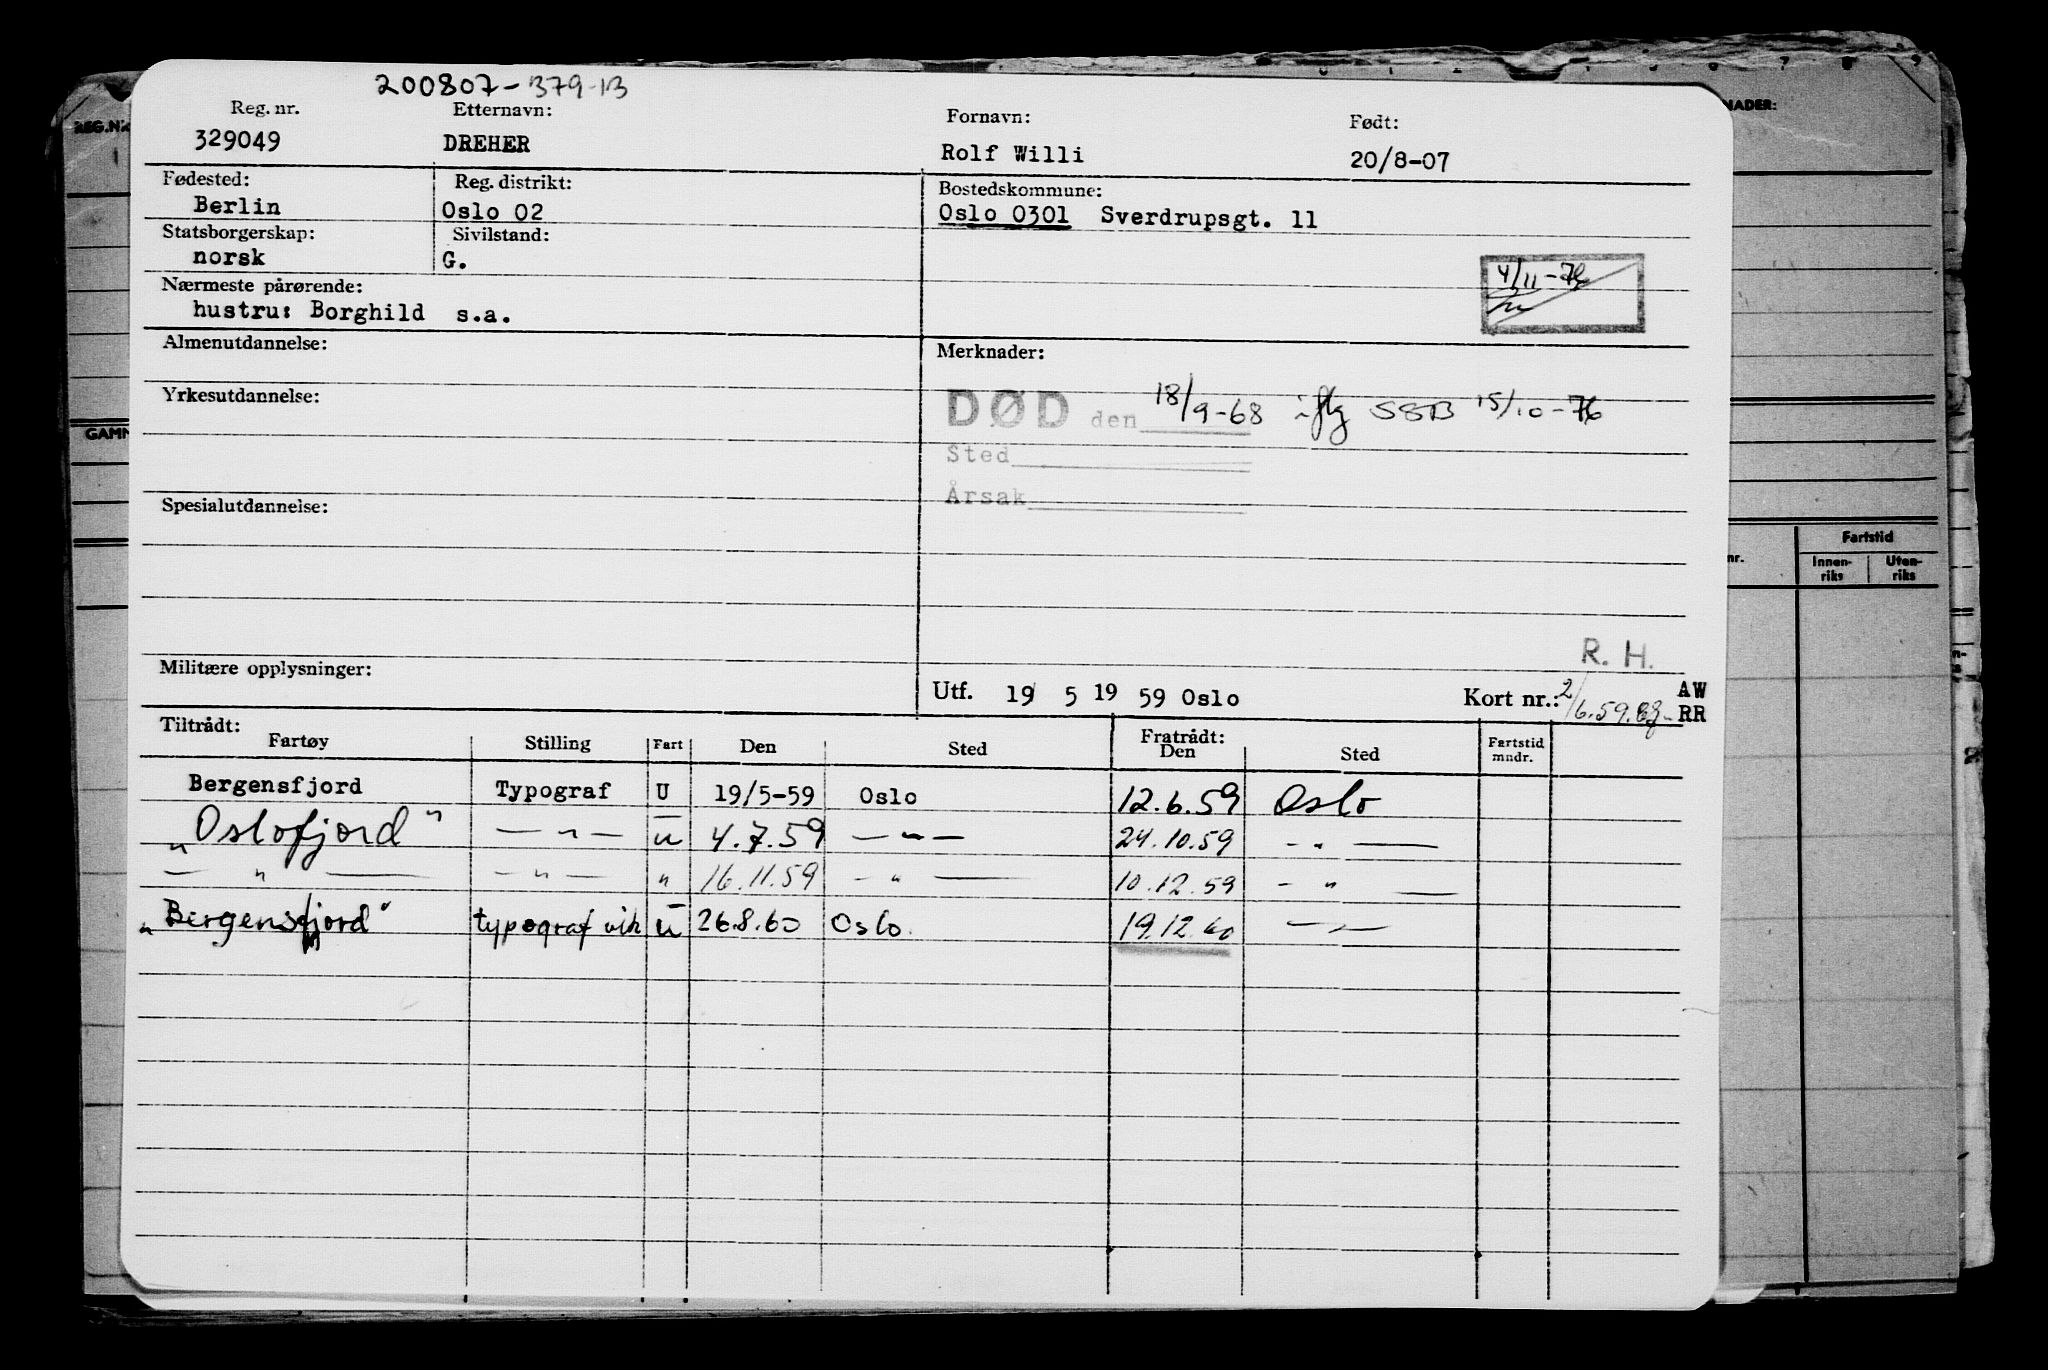 200807-379-13
Reg. nr. Etternavn: Fornavn: Født:
329049 DREHER Rolf Willi 20/8-07
Fødested: Reg. distrikt: Bostedskommune:
Berlin Oslo 02 Oslo 0301 Sverdrupsgt. 11
Statsborgerskap: Sivilstand:
norsk G.
4/11-76
Nærmeste pårørende:
hustru: Borghild s.a.
Almenutdannelse: Merknader:
Yrkesutdannelse:
DØD den 18/9-68 iflg SSB 15/10-76
Sted
Årsak
Spesialutdannelse:
R. H.
Militære opplysninger:
Utf. 19 5 19 59 Oslo Kort nr.: 2/6.59. AW RR
Tiltrådt: Fratrådt:
Fartøy Stilling Fart Den Sted Den Sted Fartstid mndr.
Bergensfjord Typograf U 19/5-59 Oslo 12.6.59 Oslo
"Oslofjord" — " — u 4.7.59 — " — 24.10.59 - " —
— " — — " — " 16.11.59 - " — 10.12.59 - " —
"Bergensfjord" typograf vik u 26.8.60 Oslo. 19.12.60 — " —
REG.NR.
GAMM
NADER:
nr.
Fartstid
Innen-riks Uten-riks